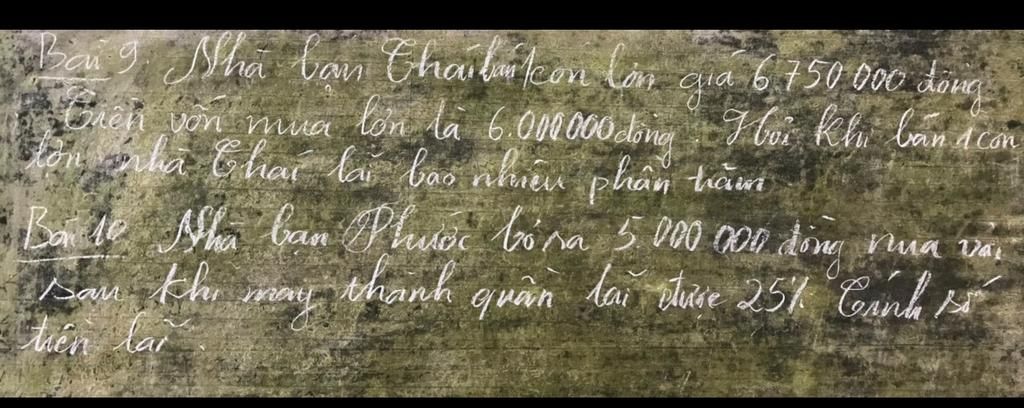 Bài 9. Nhà bạn Thái bán 1 con lợn giá 6.750 000 đồng
Tiền vốn mua lợn là 6.000000 đồng. Hỏi khi bán 1 con
lợn nhà Thái lãi bao nhiêu phần trăm
Bài 10 Nhà bạn Phước bỏ ra 5 000 000 đồng mua vải
sau khi may thành quần lãi được 25% Tính số
tiền lãi.